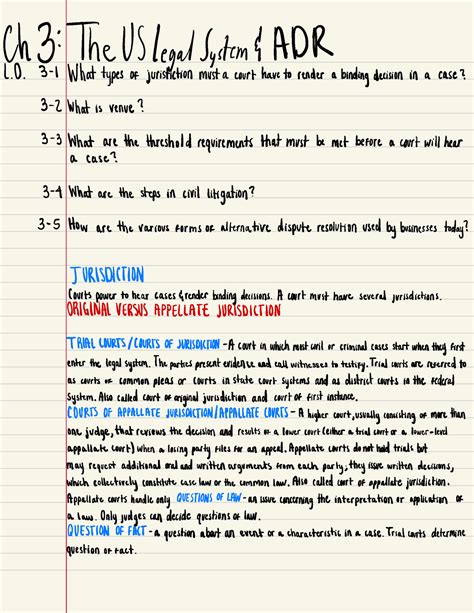 Ch 3: The US Legal System & ADR
L.O. 3-1 What types of jurisdiction must a court have to render a binding decision in a case?
3-2 What is venue?
3-3 What are the threshold requirements that must be met before a court will hear
a case?
3-4 What are the steps in civil litigation?
3-5 How are the various forms of alternative dispute resolution used by businesses today?
JURISDICTION
Courts power to hear cases & render binding decisions. A court must have several jurisdictions.
ORIGINAL VERSUS APPELLATE JURISDICTION
TRIAL COURTS / COURTS OF JURISDICTION - A court in which most civil or criminal cases start when they first
enter the legal system. The parties present evidence and call witnesses to testify. Trial courts are referred to
as courts of common pleas or courts in state court systems and as district courts in the federal
system. Also called court of original jurisdiction and court of first instance.
COURTS OF APPALLATE JURISDICTION/APPALLATE COURTS - A higher court, usually consisting of more than
one judge, that reviews the decision and results of a lower court (either a trial court or a lower-level
appallate court) when a losing party files for an appeal. Appallate courts do not hold trials but
may request additional oral and written arguments from each party, they issue written decisions,
which collectively constitute case law or the common law. Also called court of appallate jurisdiction.
Appallate courts handle only QUESTIONS OF LAW - an issue concerning the interpretation or application of
a law. Only judges can decide questions of law.
QUESTION OF FACT - a question about an event or a characteristic in a case. Trial courts determine
question of fact.